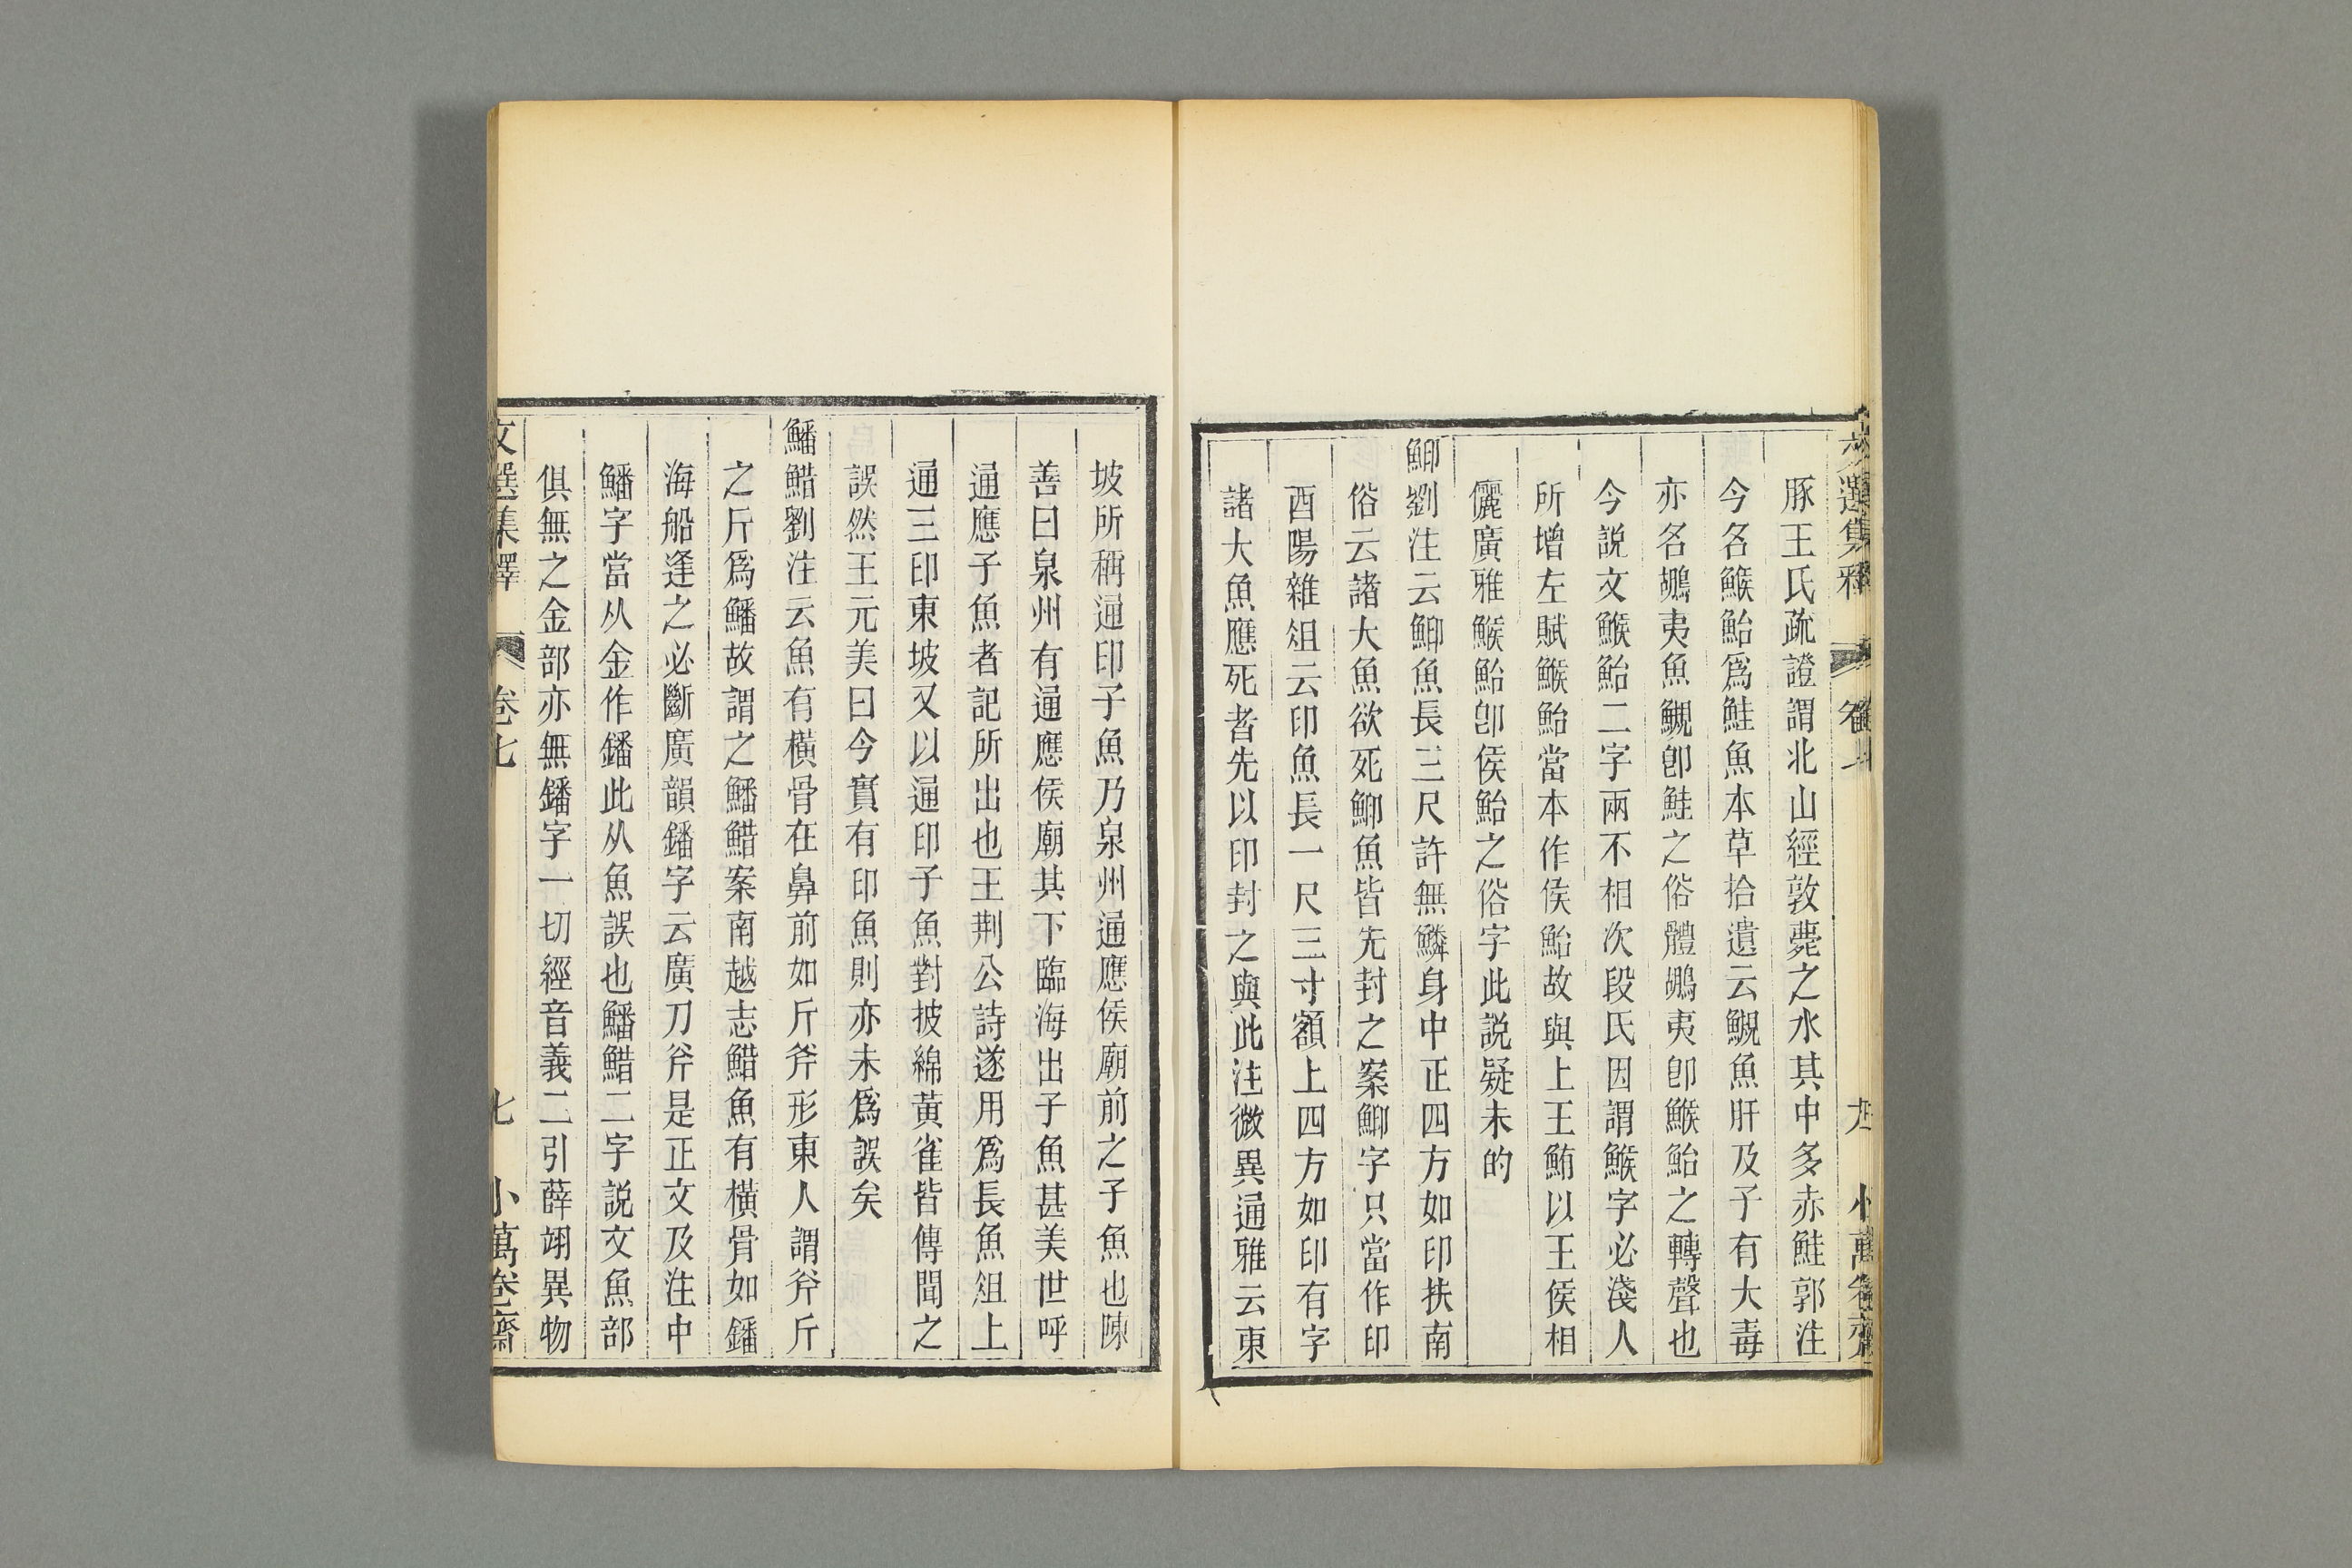 豚王氏疏證謂北山經敦薨之水其中多赤鮭郭注
今名鯸鮐爲鮭魚本草拾遺云鯢魚肝及子有大毒
亦名鶘夷魚鯢卽鮭之俗體鶘夷卽鯸鮐之轉聲也
今説文鯸鮐二字兩不相次段氏因謂鯸字必淺人
所增左賦鯸鮐當本作侯鮐故與上王鮪以王侯相
儷廣雅鯸鮐卽侯鮐之俗字此説疑未的
䱟劉注云䱟魚長三尺許無鱗身中正四方如印扶南
俗云諸大魚欲死䱟魚皆先封之案䱟字只當作印
酉陽雜俎云印魚長一尺三寸額上四方如印有字
諸大魚應死者先以印封之與此注微異通雅云東
坡所稱通印子魚乃泉州通應侯廟前之子魚也陳
善曰泉州有通應侯廟其下臨海出子魚甚美世呼
通應子魚者記所出也王荆公詩遂用爲長魚俎上
通三印東坡又以通印子魚對披綿黃雀皆傳聞之
誤然王元美曰今實有印魚則亦未爲誤矣
鱕䱜劉注云魚有橫骨在鼻前如斤斧形東人謂斧斤
之斤爲鱕故謂之鱕䱜案南越志䱜魚有橫骨如鐇
海船逢之必斷廣韻鐇字云廣刀斧是正文及注中
鱕字當从金作鐇此从魚誤也鱕䱜二字説文魚部
俱無之金部亦無鐇字一切經音義二引薛翊異物
文選集釋 卷七 七 小萬卷齋